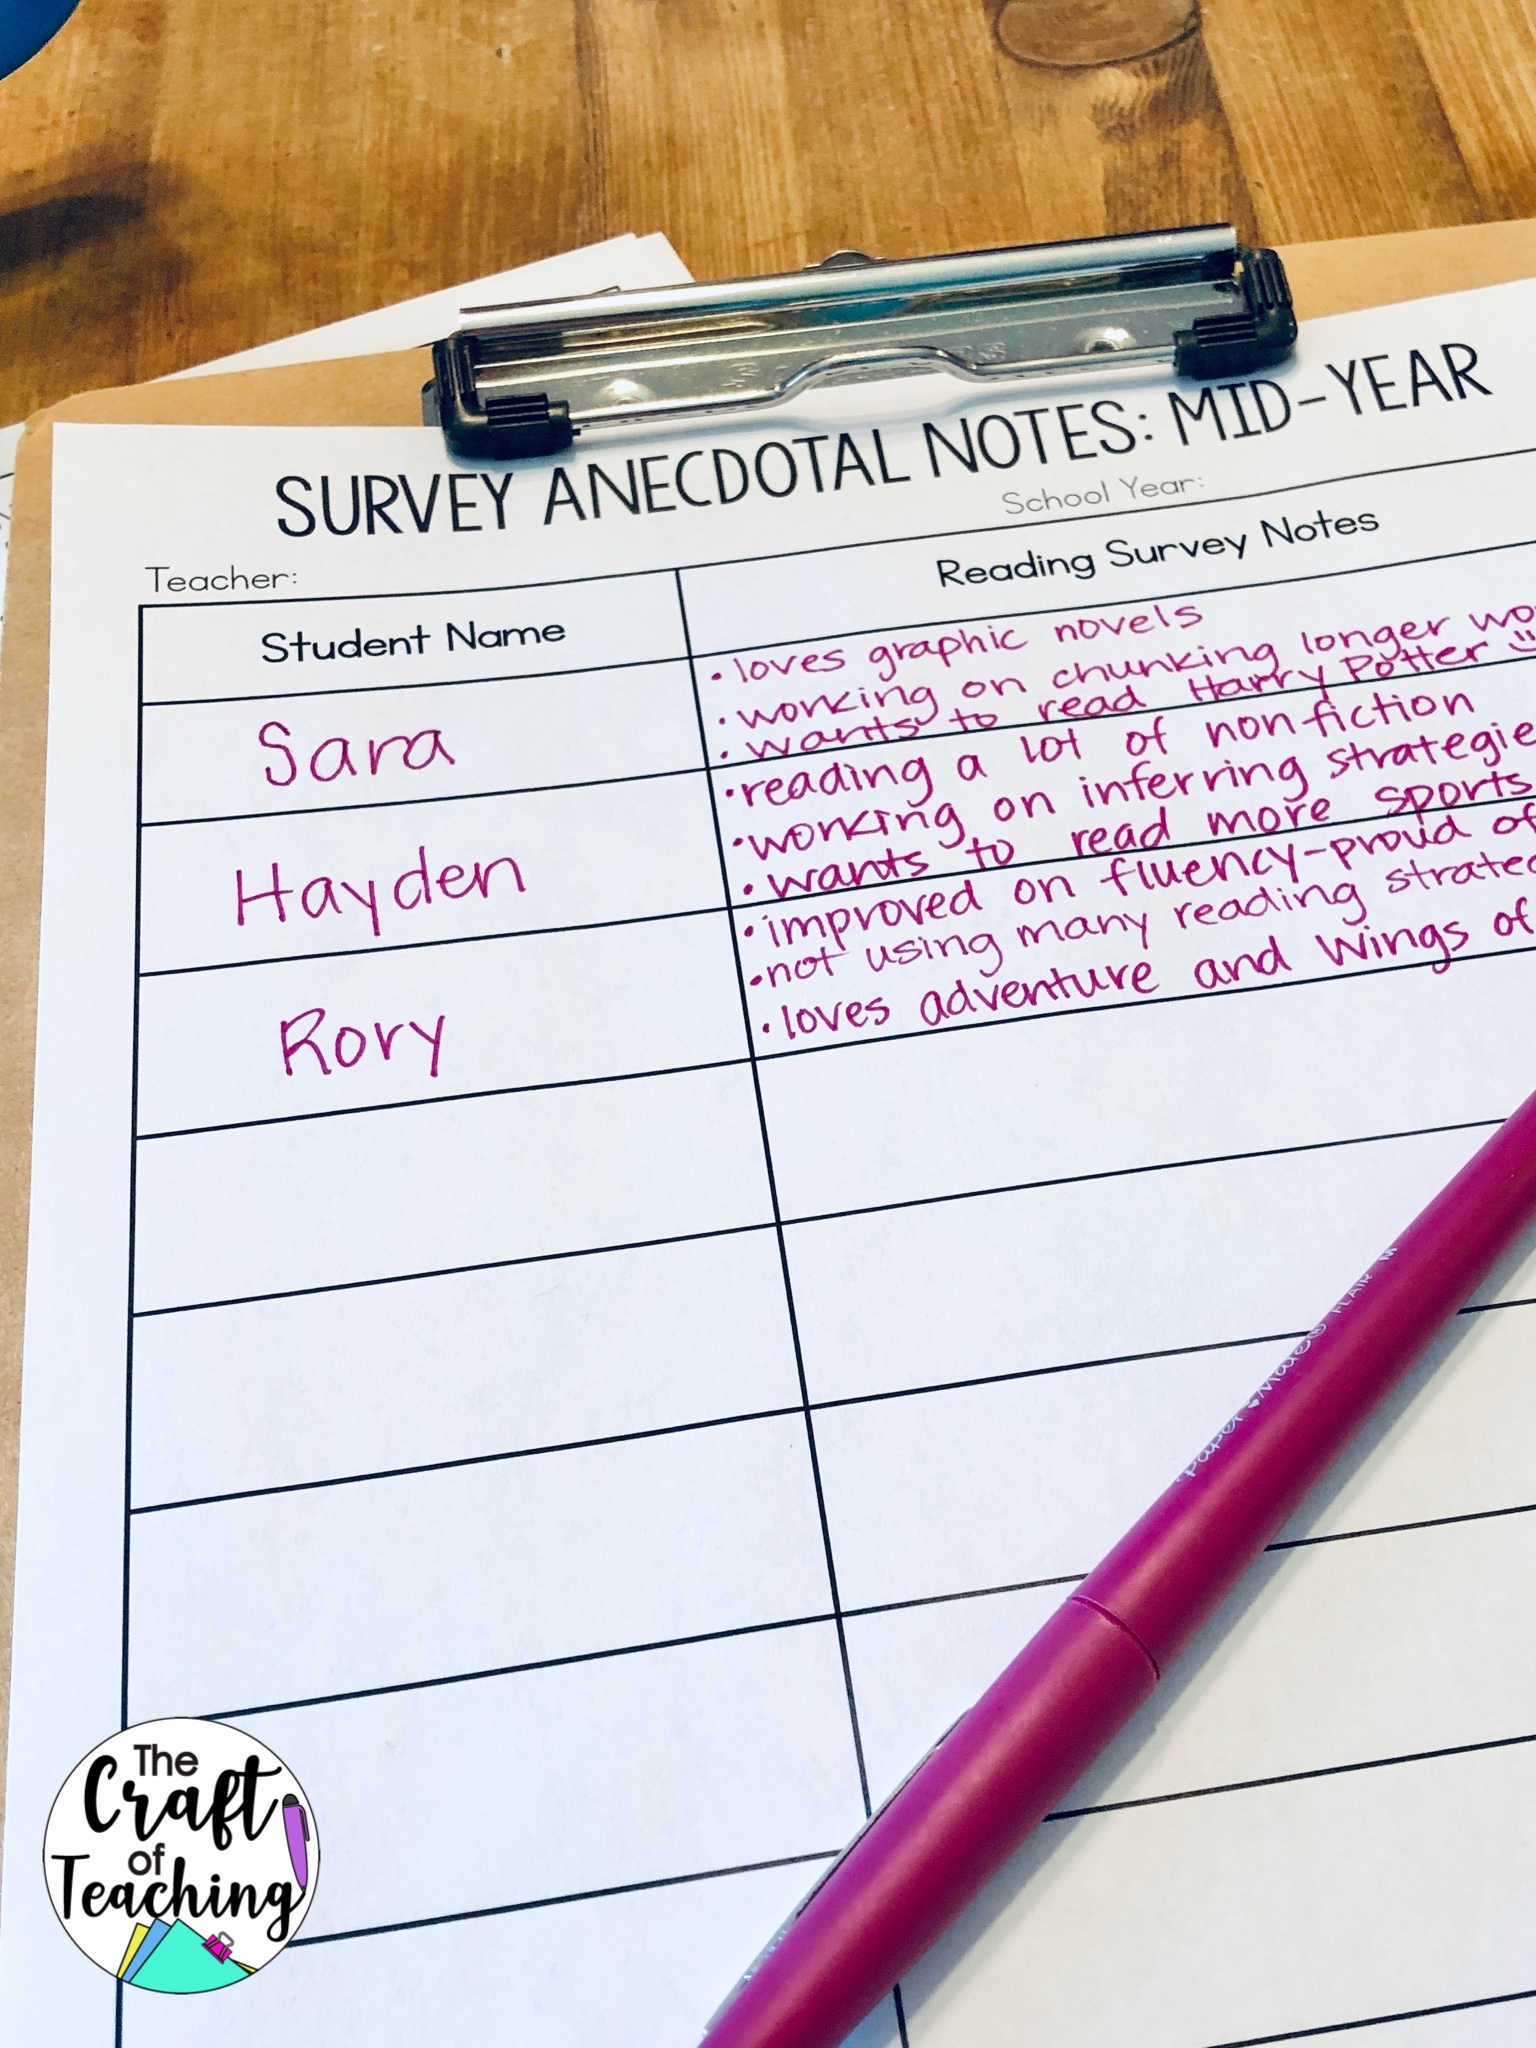 SURVEY ANECDOTAL NOTES: MID-YEAR
Teacher:
School Year:
Student Name
Reading Survey Notes
Sara
• loves graphic novels
• working on chunking longer
• wants to read Harry Potter
Hayden
• reading a lot of nonfiction
• working on inferring
• wants to read more sports
Rory
• improved on fluency-proud of
• not using many reading
• loves adventure and Wings of
Paper Mate® FLAIR M
The
Craft
of
Teaching